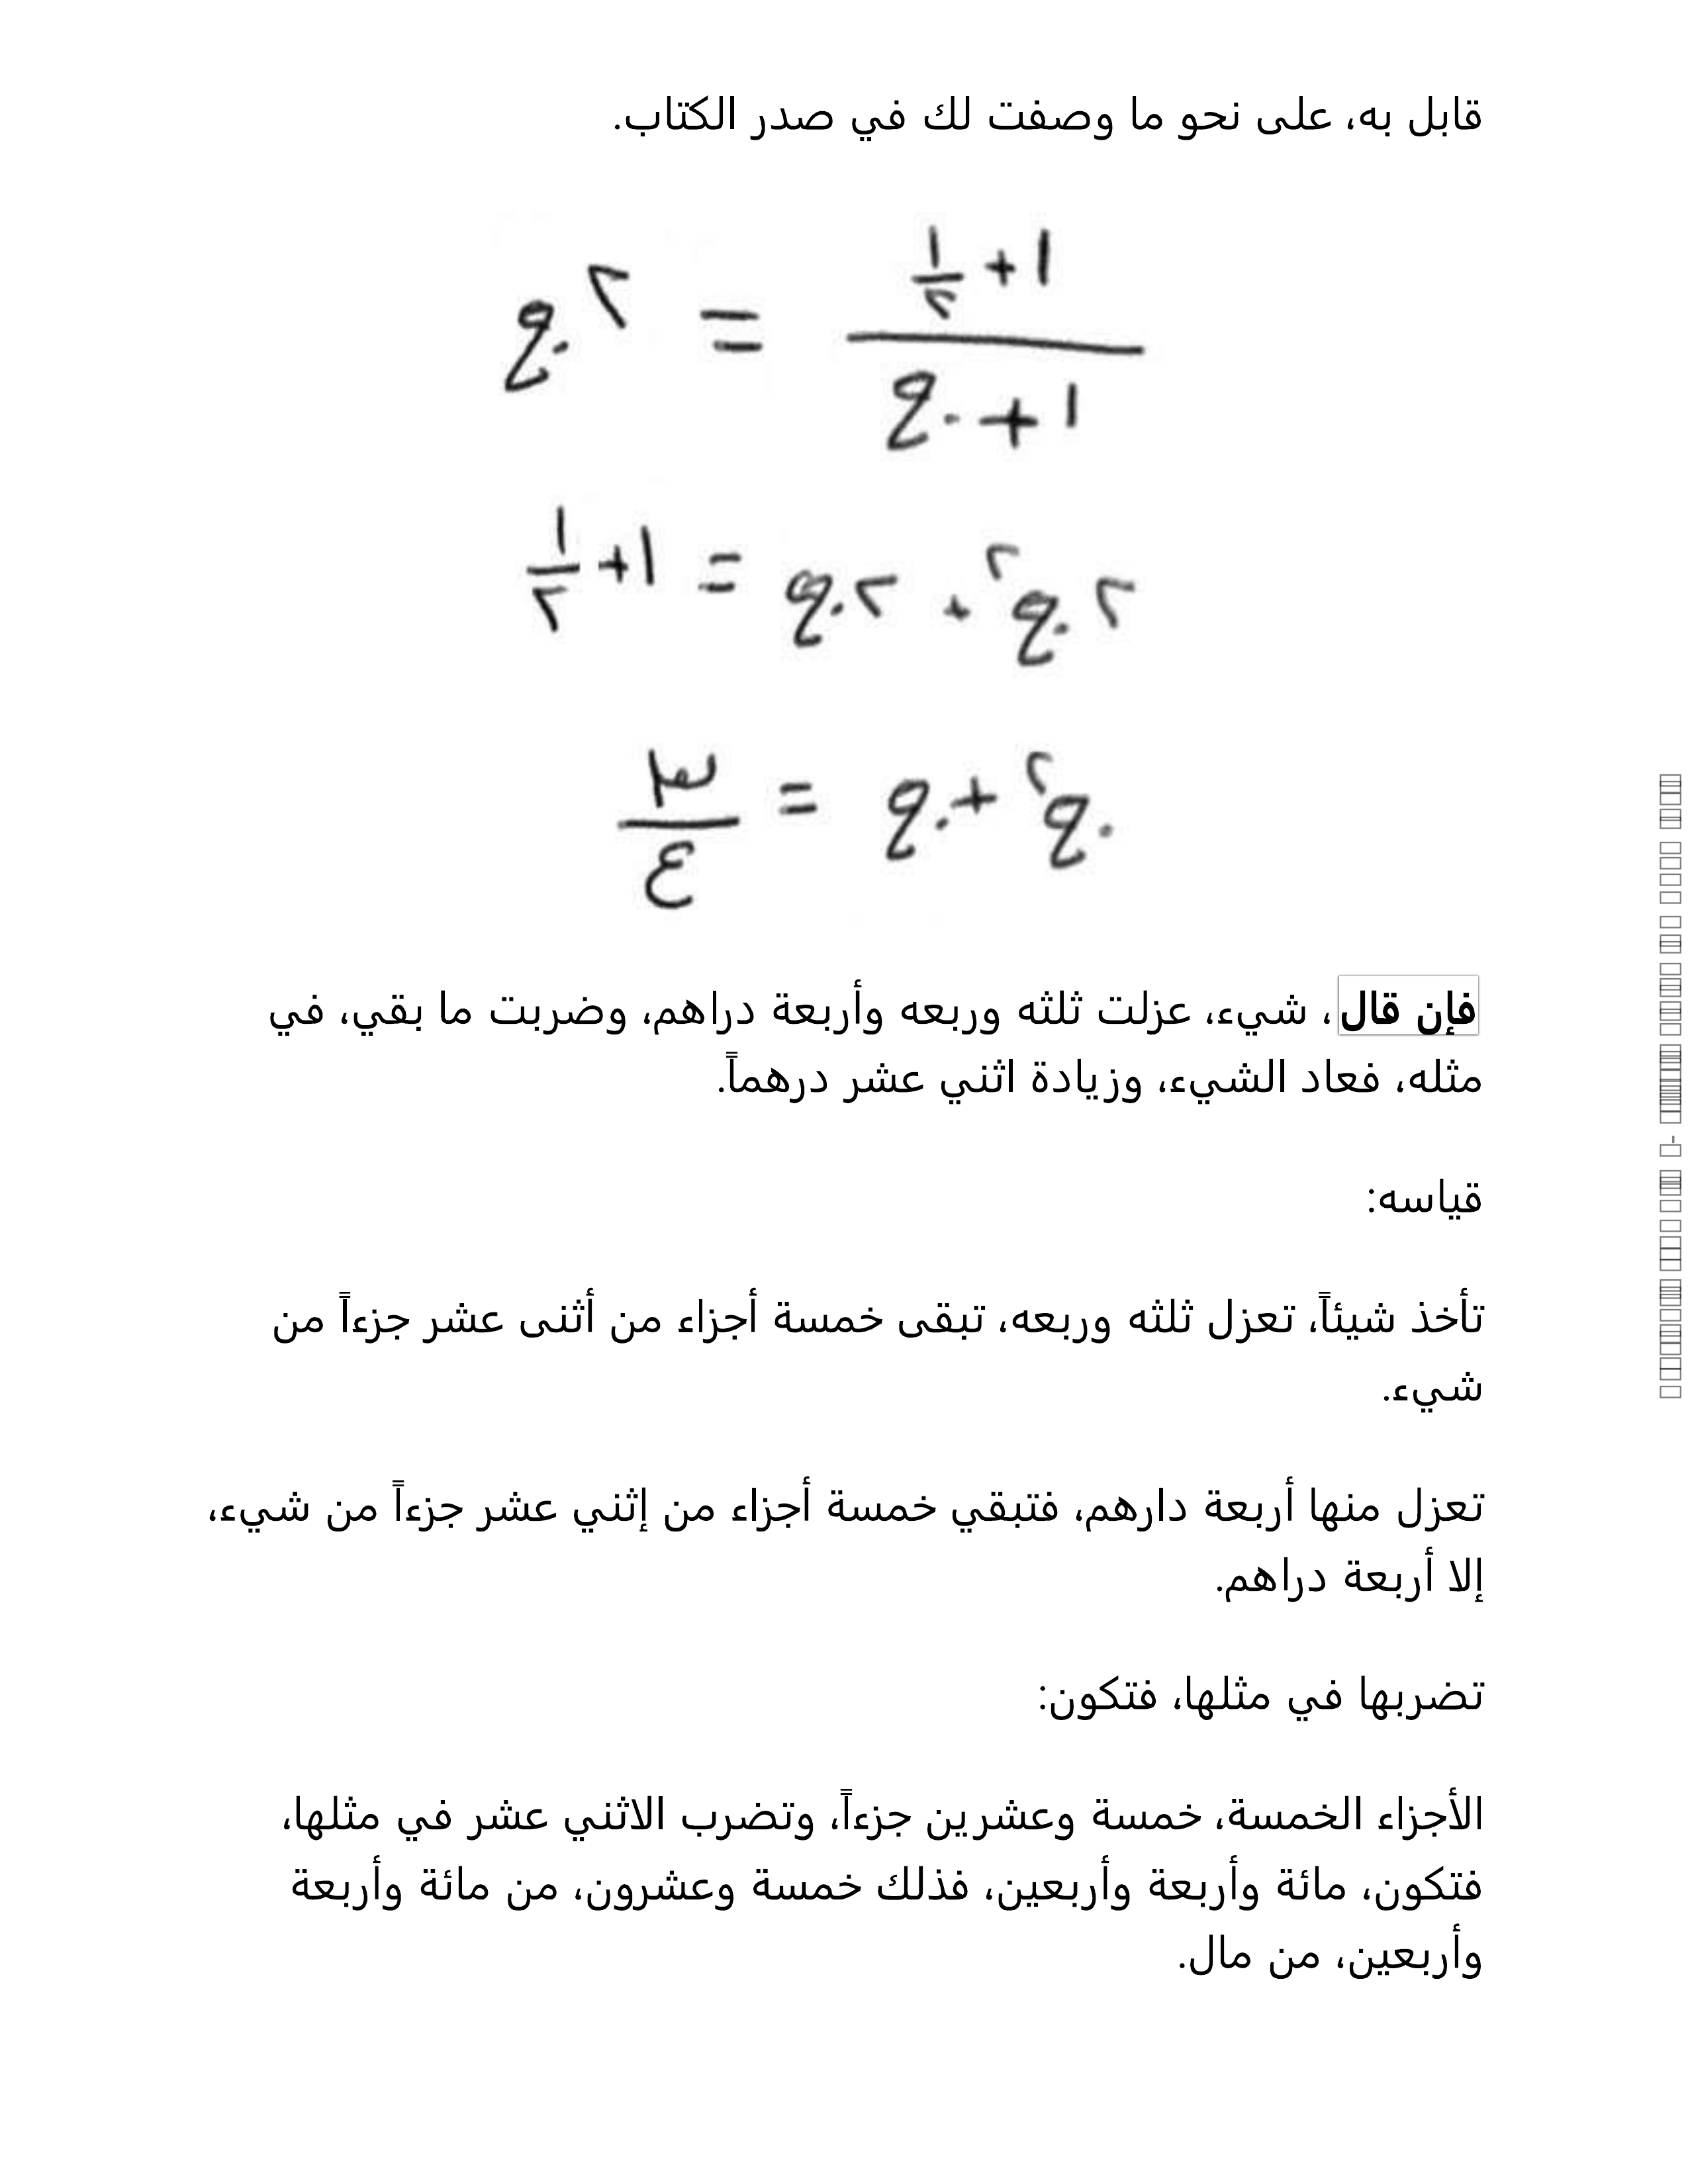 قابل به، على نحو ما وصفت لك في صدر الكتاب.
١ + ١/٢
ــــــ = ٢ ج
١ + ج
٢ ج٢ + ٢ ج = ١ + ١/٢
ج٢ + ج = ٣/٤
فإن قال، شيء، عزلت ثلثه وربعه وأربعة دراهم، وضربت ما بقي، في
مثله، فعاد الشيء، وزيادة اثني عشر درهماً.
قياسه:
تأخذ شيئاً، تعزل ثلثه وربعه، تبقى خمسة أجزاء من أثنى عشر جزءاً من
شيء.
تعزل منها أربعة دارهم، فتبقي خمسة أجزاء من إثني عشر جزءاً من شيء،
إلا أربعة دراهم.
تضربها في مثلها، فتكون:
الأجزاء الخمسة، خمسة وعشرين جزءاً، وتضرب الاثني عشر في مثلها،
فتكون، مائة وأربعة وأربعين، فذلك خمسة وعشرون، من مائة وأربعة
وأربعين، من مال.